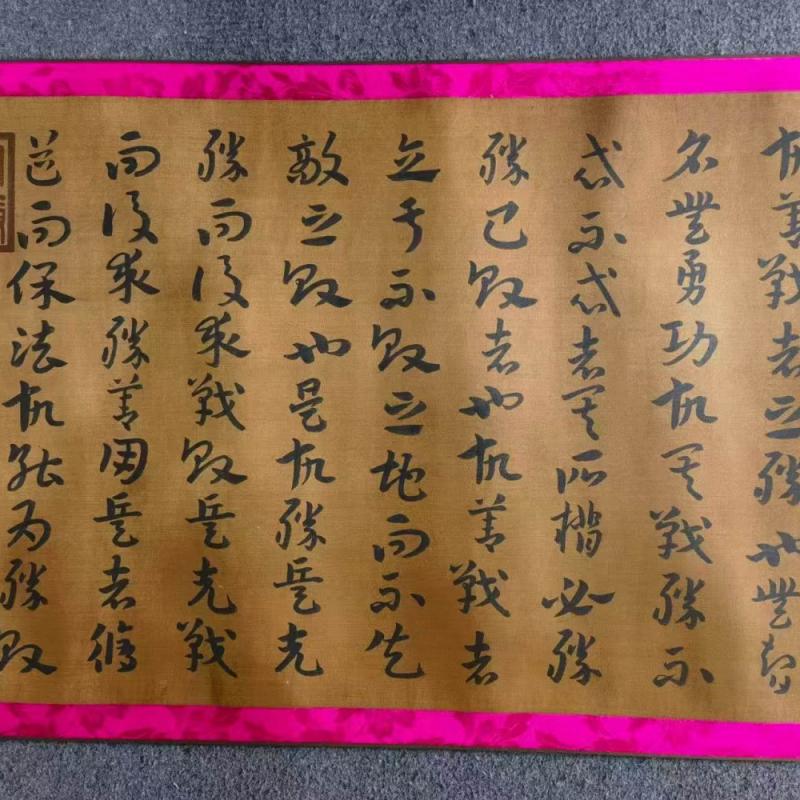 故善戰者之勝也無智
名無勇功故其戰勝不
忒不忒者其所措必勝
勝已敗者也故善戰者
立于不敗之地而不失
敵之敗也是故勝兵先
勝而後求戰敗兵先戰
而後求勝善用兵者脩
道而保法故能為勝敗